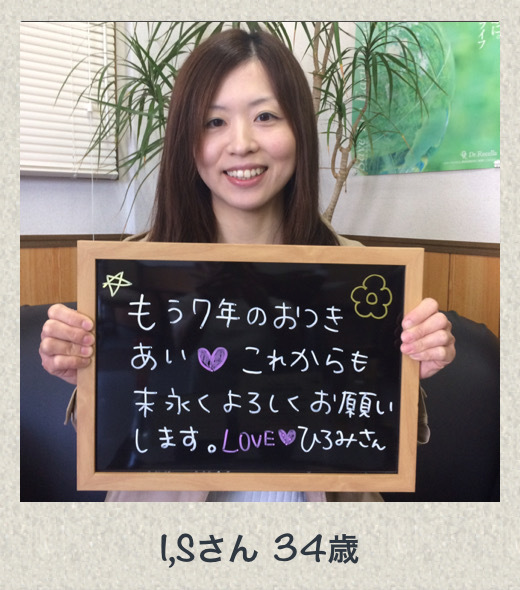 イフ
Dr.Recella
もう7年のおつき
あい♥これからも
末永くよろしくお願い
します。LOVE♥ひろみさん
I,Sさん 34歳